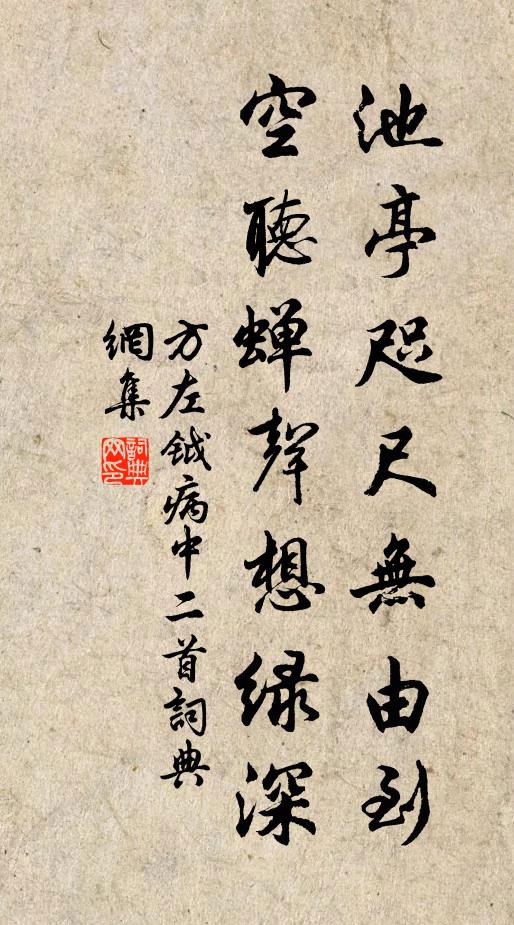 池亭咫尺無由到
空聽蟬聲想綠深
方左鉞病中二首詞典
網集
詞典
网印